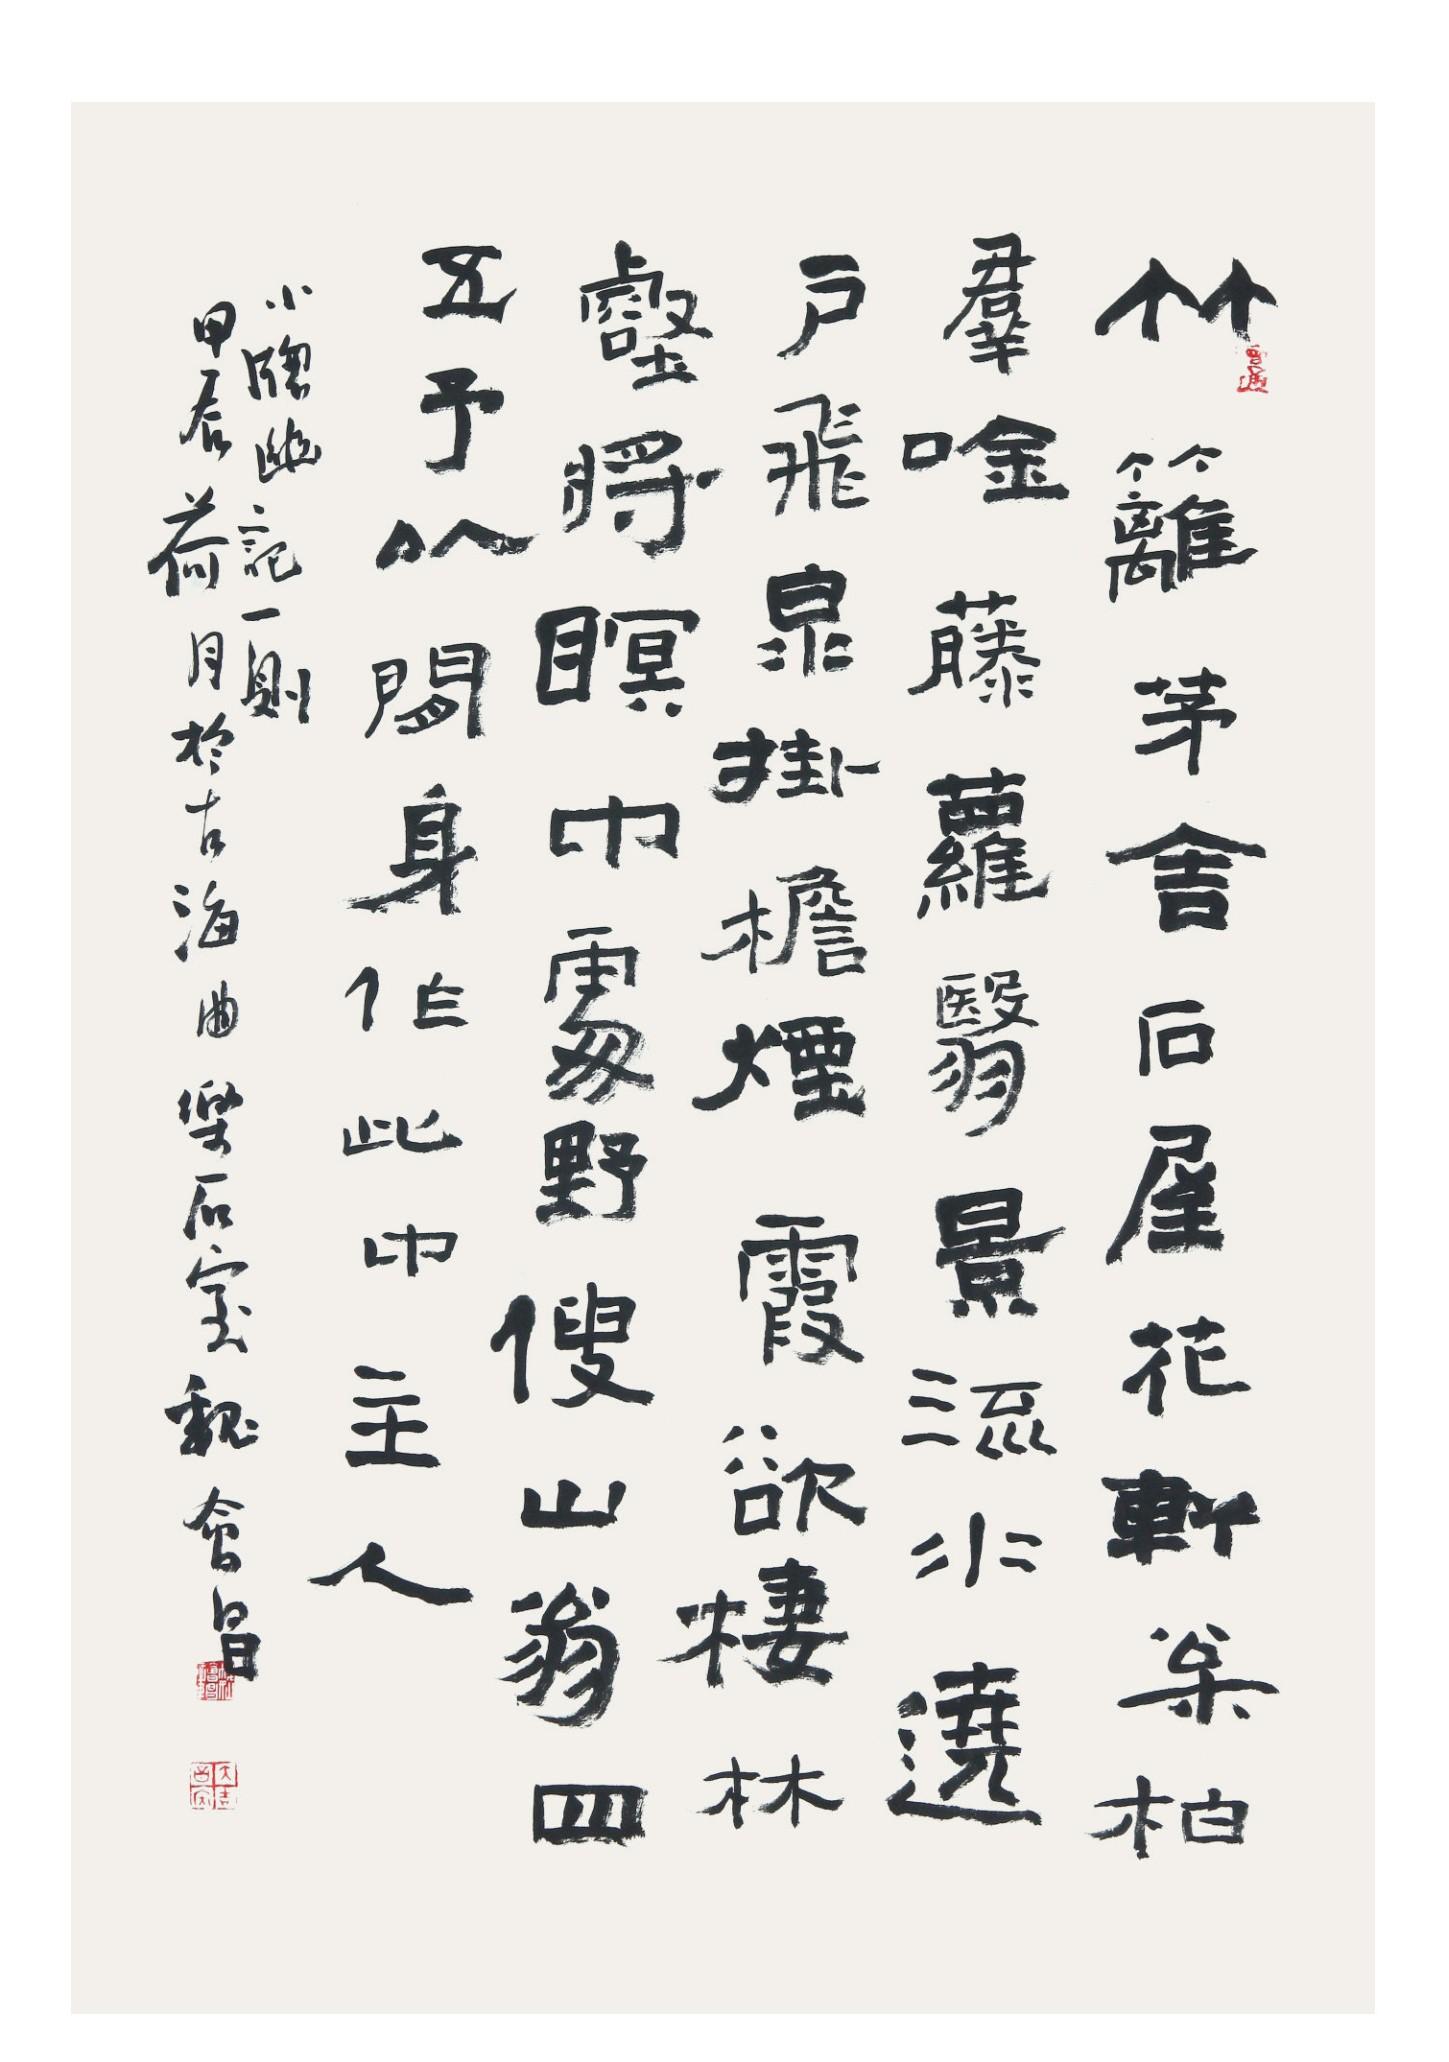 竹籬茅舍石屋花軒枀柏
羣唫藤蘿翳景流水遶
戶飛泉掛檐煙霞欲棲林
壑將瞑中處野傁山翁四
五予以閒身作此中主人
小牕幽記一則
甲辰荷月於古海曲樂石室魏會昌